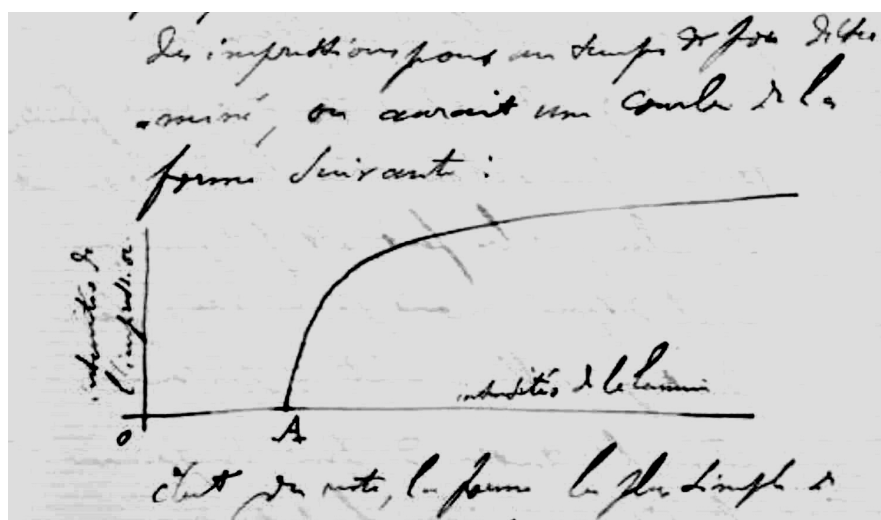 des impressions pour un temps de pose déter
-miné, on aurait une courbe de la
forme suivante :
intensités de
l'impression
intensités de la lumière
O
A
C'est du reste, la forme la plus simple de